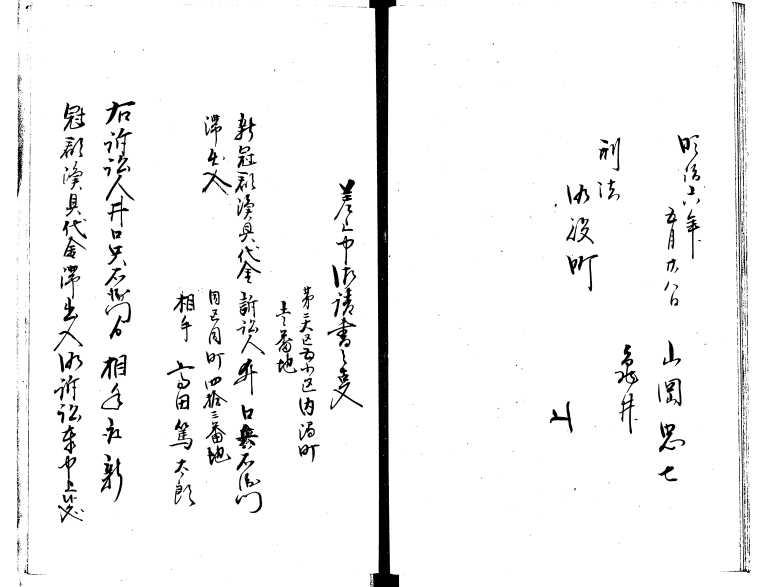 明治六年
五月廿八日 山岡忠七
刑法 亀井
御役町
差上申御請書之事
第三大区五小区内澗町
壱番地
新冠郡漁具代金 訴訟人 井口兵右衛門
滞出入
同区同町四拾三番地
相手 高田篤太郎
右訴訟人井口兵右衛門ゟ相手取新
冠郡漁具代金滞出入御訴訟奉申上